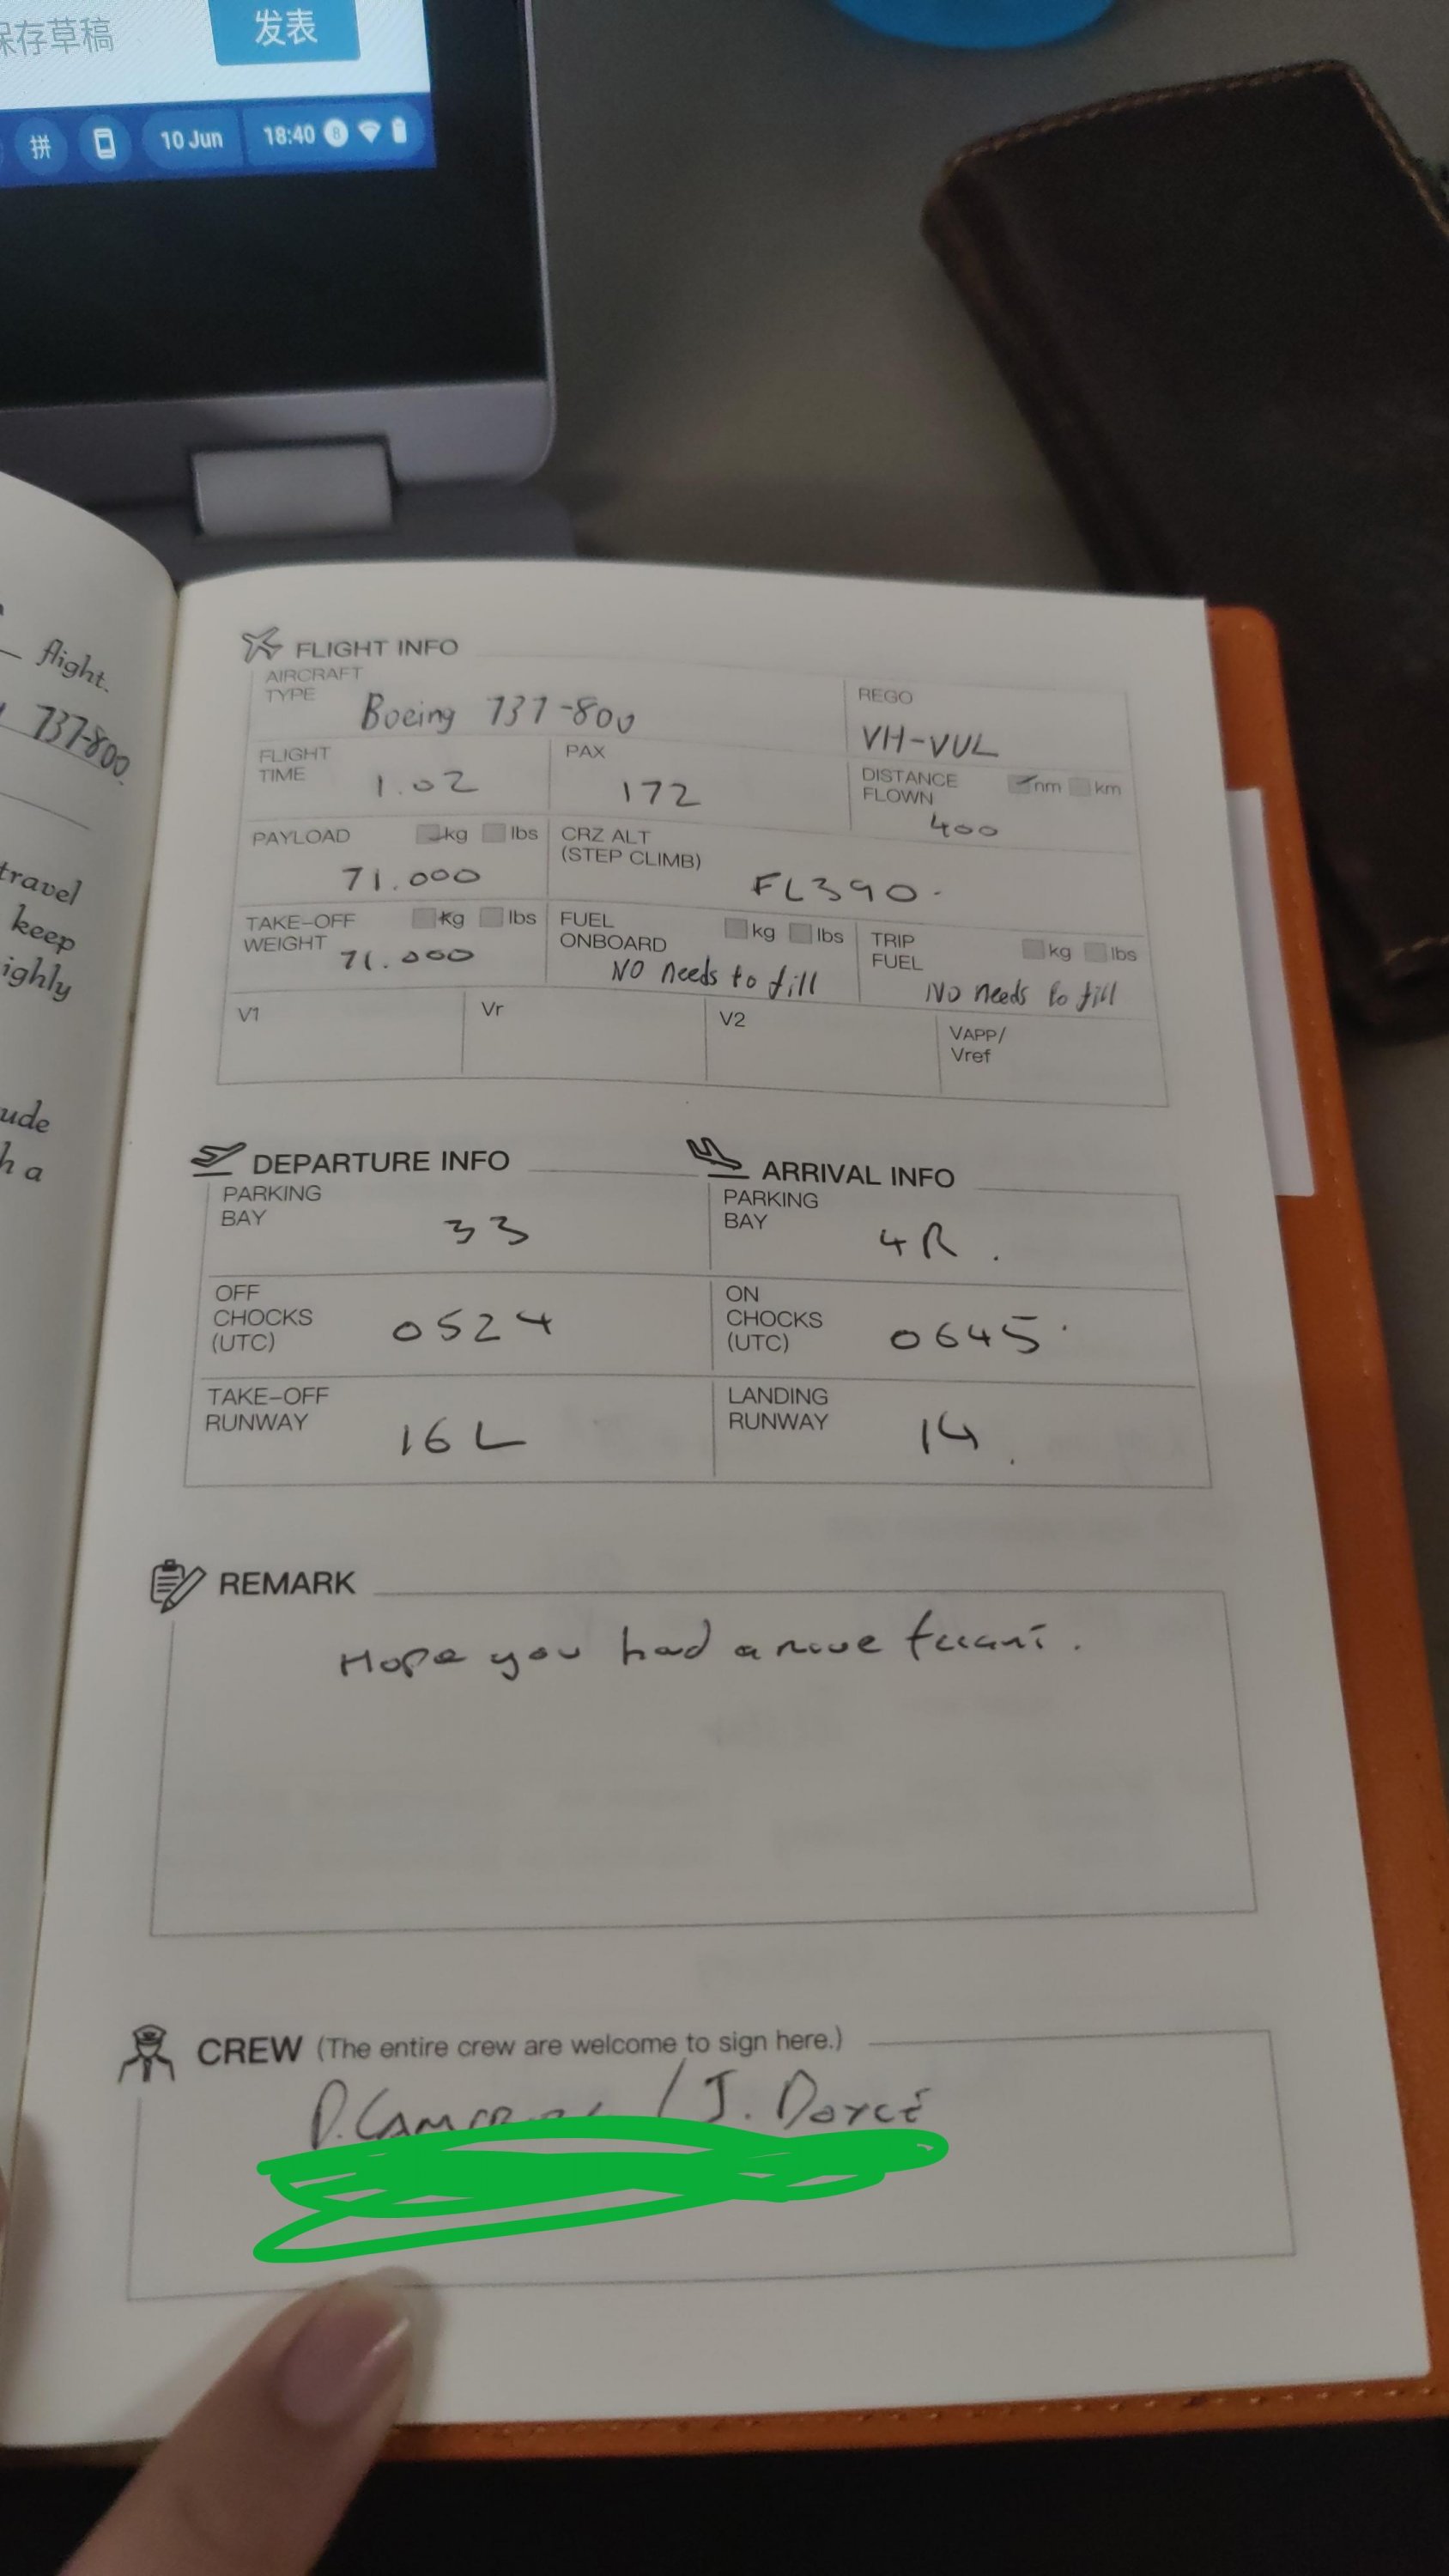 保存草稿 发表
拼 10 Jun 18:40 8
flight.
737-800
travel
keep
ighly
ude
h a
FLIGHT INFO
AIRCRAFT TYPE Boeing 737-800
REGO VH-VUL
FLIGHT TIME 1.02
PAX 172
DISTANCE FLOWN nm km 400
PAYLOAD kg lbs 71.000
CRZ ALT (STEP CLIMB) FL390.
TAKE-OFF WEIGHT kg lbs 71.000
FUEL ONBOARD kg lbs NO needs to fill
TRIP FUEL kg lbs No needs to fill
V1 Vr V2 VAPP/ Vref
DEPARTURE INFO
PARKING BAY 33
OFF CHOCKS (UTC) 0524
TAKE-OFF RUNWAY 16L
ARRIVAL INFO
PARKING BAY 4R.
ON CHOCKS (UTC) 0645
LANDING RUNWAY 14.
REMARK
Hope you had a nice flight.
CREW (The entire crew are welcome to sign here.)
/ J.